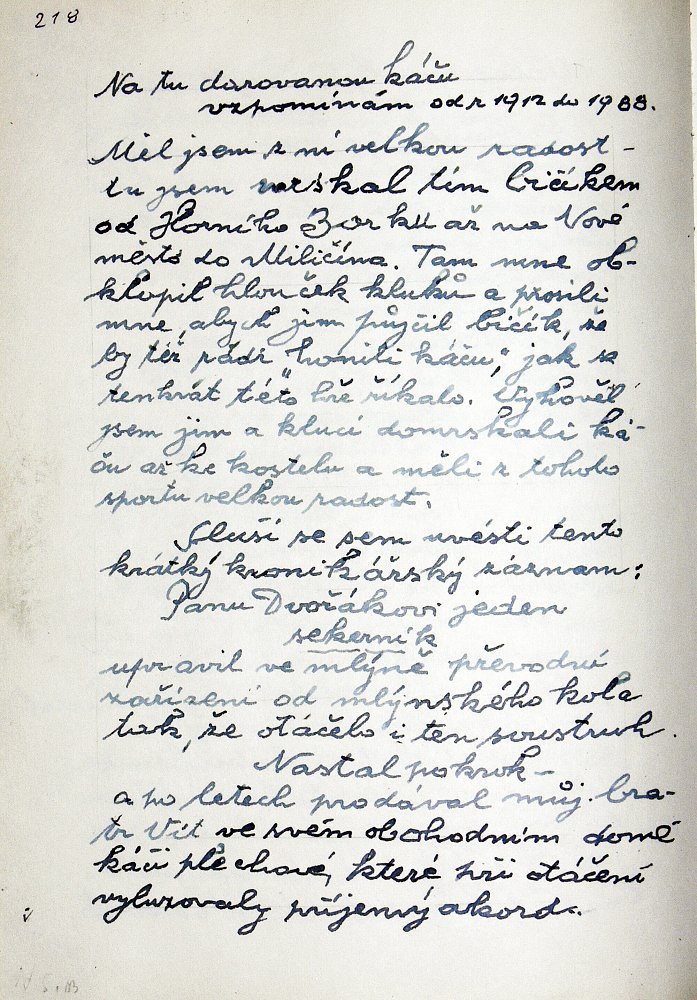 218
Na tu darovanou káču
vzpomínám od r 1912 do 1988.
Měl jsem z ní velkou radost –
tu jsem mrskal tím bičíkem
od Horního Borku až na Nové
město do Miličína. Tam mne ob-
klopil hlouček kluků a prosili
mne, abych jim půjčil bičík, že
by též rádi "honili káču", jak se
tenkrát této hře říkalo. Vyhověl
jsem jim a kluci domrskali ká-
ču až ke kostelu a měli z tohoto
sportu velkou radost.
Sluší se sem uvésti tento
krátký kronikářský záznam:
Panu Dvořákovi jeden
sekerník
upravil ve mlýně převodní
zařízení od mlýnského kola
tak, že otáčelo i ten soustruh.
Nastal pokrok –
a po letech prodával můj bra-
tr Vít ve svém obchodním domě
káči plechové, které při otáčení
vyluzovaly příjemný akord.